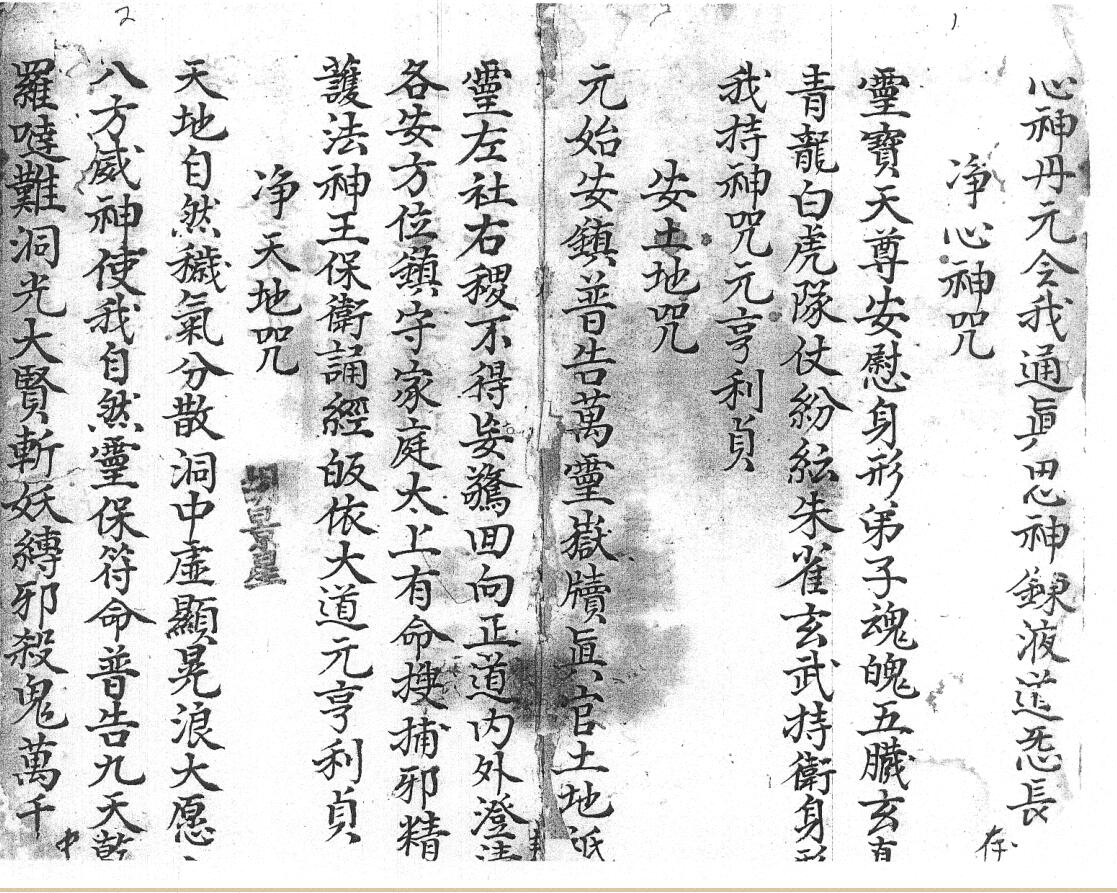 1
心神丹元令我通眞思神錬液道炁長
存
净心神咒
靈寶天尊安慰身形弟子魂魄五臟玄真
青龍白虎隊仗紛紜朱雀玄武持衛身形
我持神咒元亨利貞
安土地咒
元始安鎮普告萬靈嶽牘眞官土地祇
2
靈左社右稷不得妄驚回向正道内外澄清
各安方位鎮守家庭太上有命搜捕邪精
護法神王保衛誦經皈依大道元亨利貞
净天地咒
天地自然穢氣分散洞中虛顯晃浪大愿
八方威神使我自然靈保符命普告九天乾
羅噠難洞光大賢斬妖縛邪殺鬼萬千
中